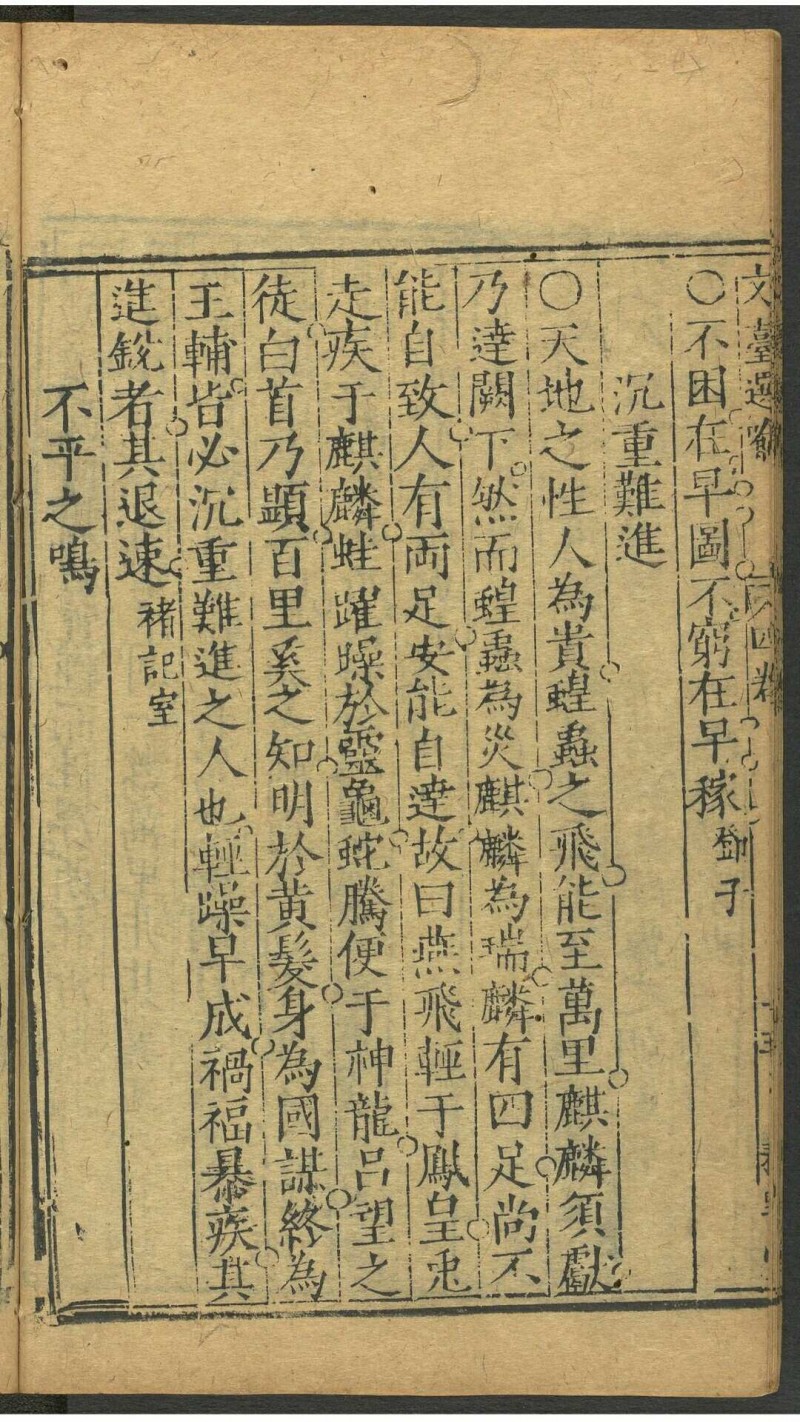 文臺選 四卷
○不困在早圖不窮在早稼 鄧子
沉重難進
○天地之性人為貴蝗蟲之飛能至萬里麒麟須獻
乃達闕下然而蝗蟲為災麒麟為瑞麟有四足尚不
能自致人有両足安能自達故曰燕飛輕于鳳皇兎
走疾于麒麟蛙躍躁於靈龜蛇騰便于神龍吕望之
徒白首乃顕百里奚之知明於黄髮身為國謀終為
王輔皆必沉重難進之人也輕躁早成禍福暴疾其
進銳者其退速 禇記室
不平之鳴